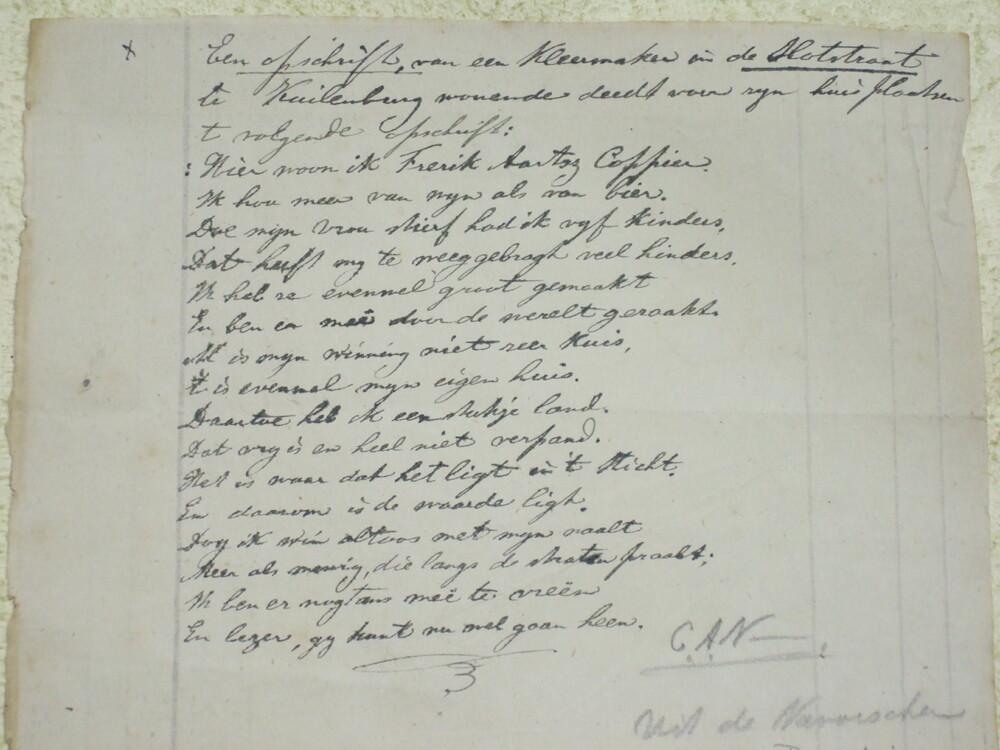 x Een opschrift, van een Kleermaker in de Slotstraat
te Kuilenburg wonende deedt voor zyn huis plaatsen
t volgende opschrift:
: Hier woon ik Frerik Aartsz Coppier.
Ik hou meer van wyn als van bier.
Doe mijn vrou stierf had ik vyf kinders,
Dat heeft my te weeggebragh veel hinders.
Ik heb ze evenwel groot gemaakt
En ben er meê door de werelt geraakt.
Al is myn winning niet zeer kuis,
't is evenwel myn eigen huis.
Daartoe heb ik een stukje land.
Dat vry is en heel niet verpand.
Het is waar dat het ligt in 't Sticht.
En daarom is de waarde ligt.
Dog ik win altoos met myn naalt
Meer als menig, die langs de straten praalt;
Ik ben er nogtans meê te vreën
En lezer, gy kunt nu wel gaan heen.
C.A.N.
Uit de Navorscher